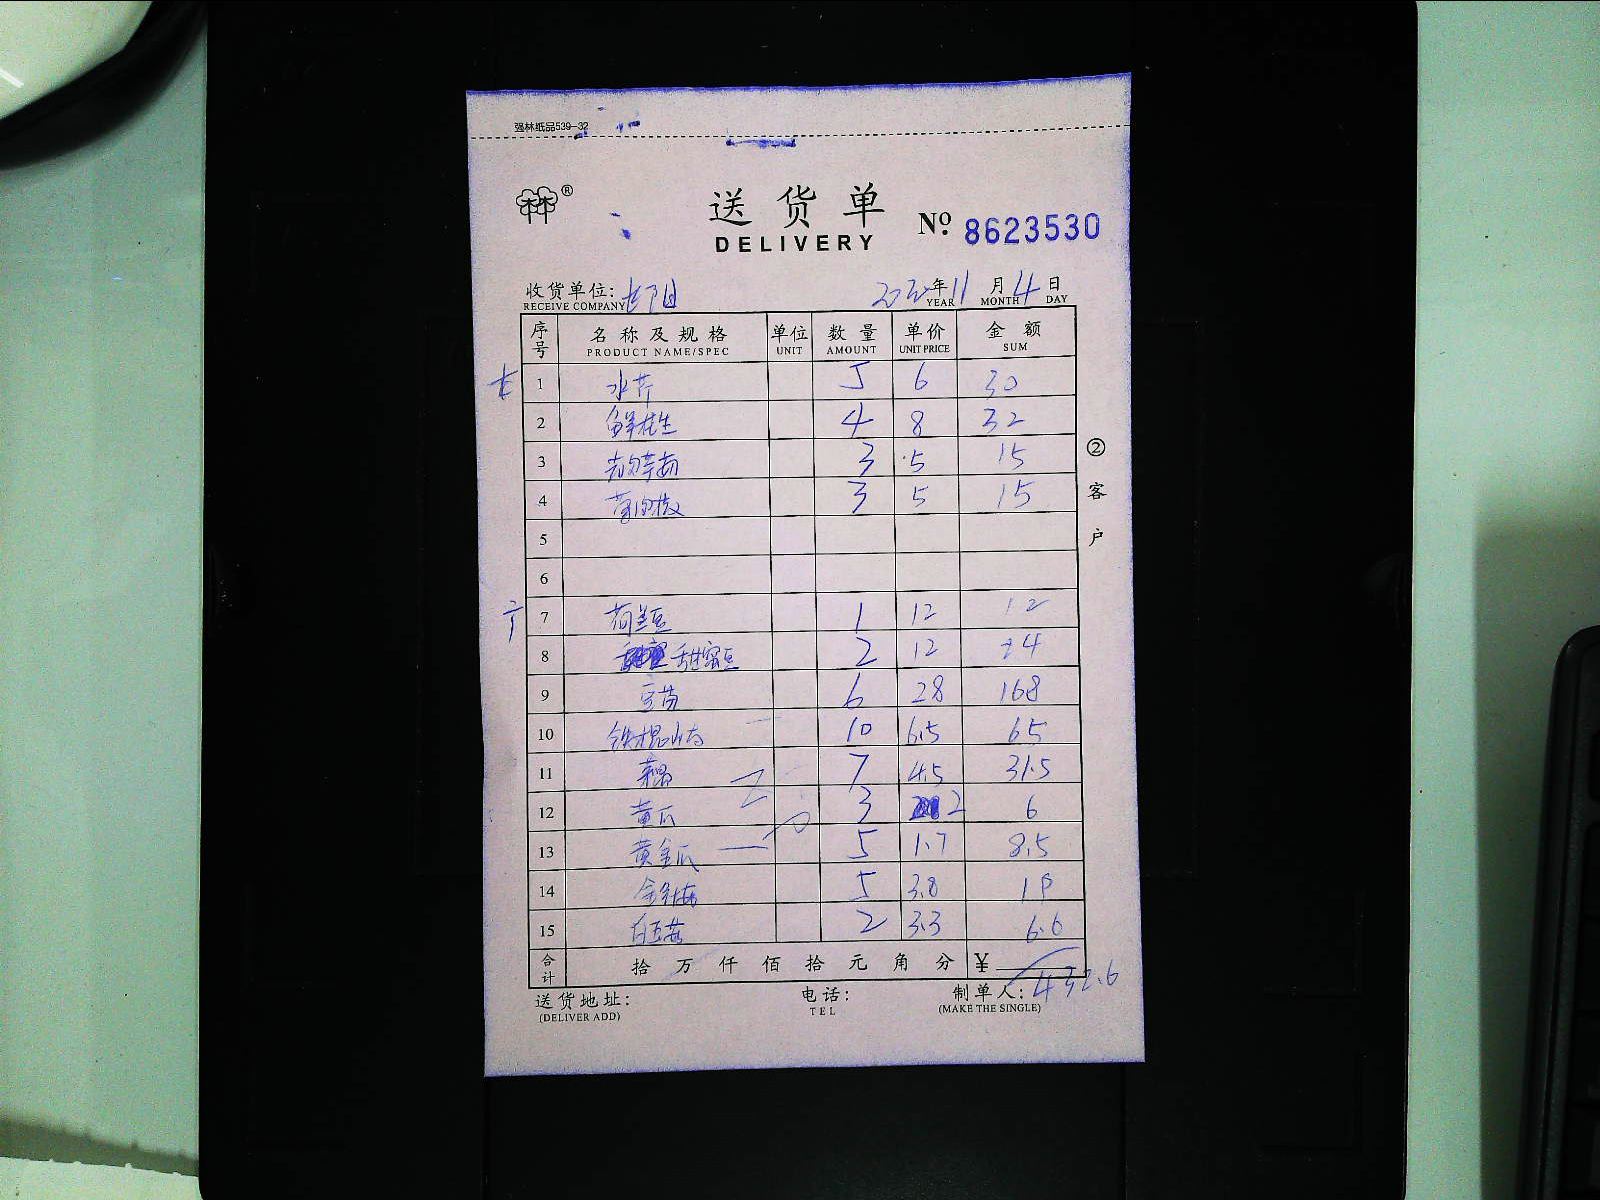 强林纸品539-32
林®
送货单
DELIVERY
Nº. 8623530
收货单位: 长阳 2020年11月4日
RECEIVE COMPANY YEAR MONTH DAY
序号 名称及规格 单位 数量 单价 金额
PRODUCT NAME/SPEC UNIT AMOUNT UNIT PRICE SUM
1 水芹 5 6 30
2 鲜花生 4 8 32
3 3 5 15
4 3 5 15
5
6
7 荷兰豆 1 12 12
8 甜蜜豆 2 12 24
9 豆苗 6 28 168
10 铁棍山药 10 6.5 65
11 藕 7 4.5 31.5
12 黄瓜 3 2 6
13 黄金瓜 5 1.7 8.5
14 金针菇 5 3.8 19
15 白玉菇 2 3.3 6.6
合计 拾万仟佰拾元角分 ¥ 432.6
②客户
送货地址: 电话: 制单人:
(DELIVER ADD) TEL (MAKE THE SINGLE)